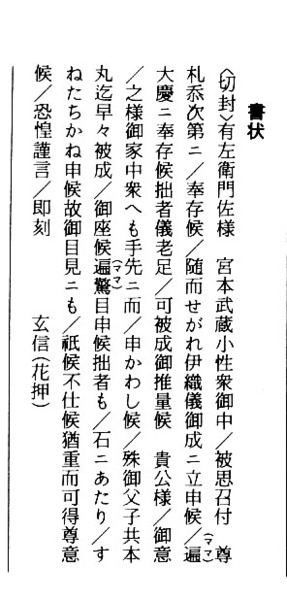 書状
〈切封〉有左衛門佐様　宮本武蔵小性衆御中／被思召付　尊
札忝次第ニ／奉存候／随而せがれ伊織儀御成ニ立申候／遍(ママ)
大慶ニ奉存候拙者儀老足／可被成御推量候　貴公様／御意
／之様御家中衆へも手先ニ而／申かわし候／殊御父子共本
丸迄早々被成／御座候遍(ママ)驚目申候拙者も／石ニあたり／す
ねたちかね申候故御目見ニも／祇候不仕候猶重而可得尊意
候／恐惶謹言／即刻　　　玄信(花押)